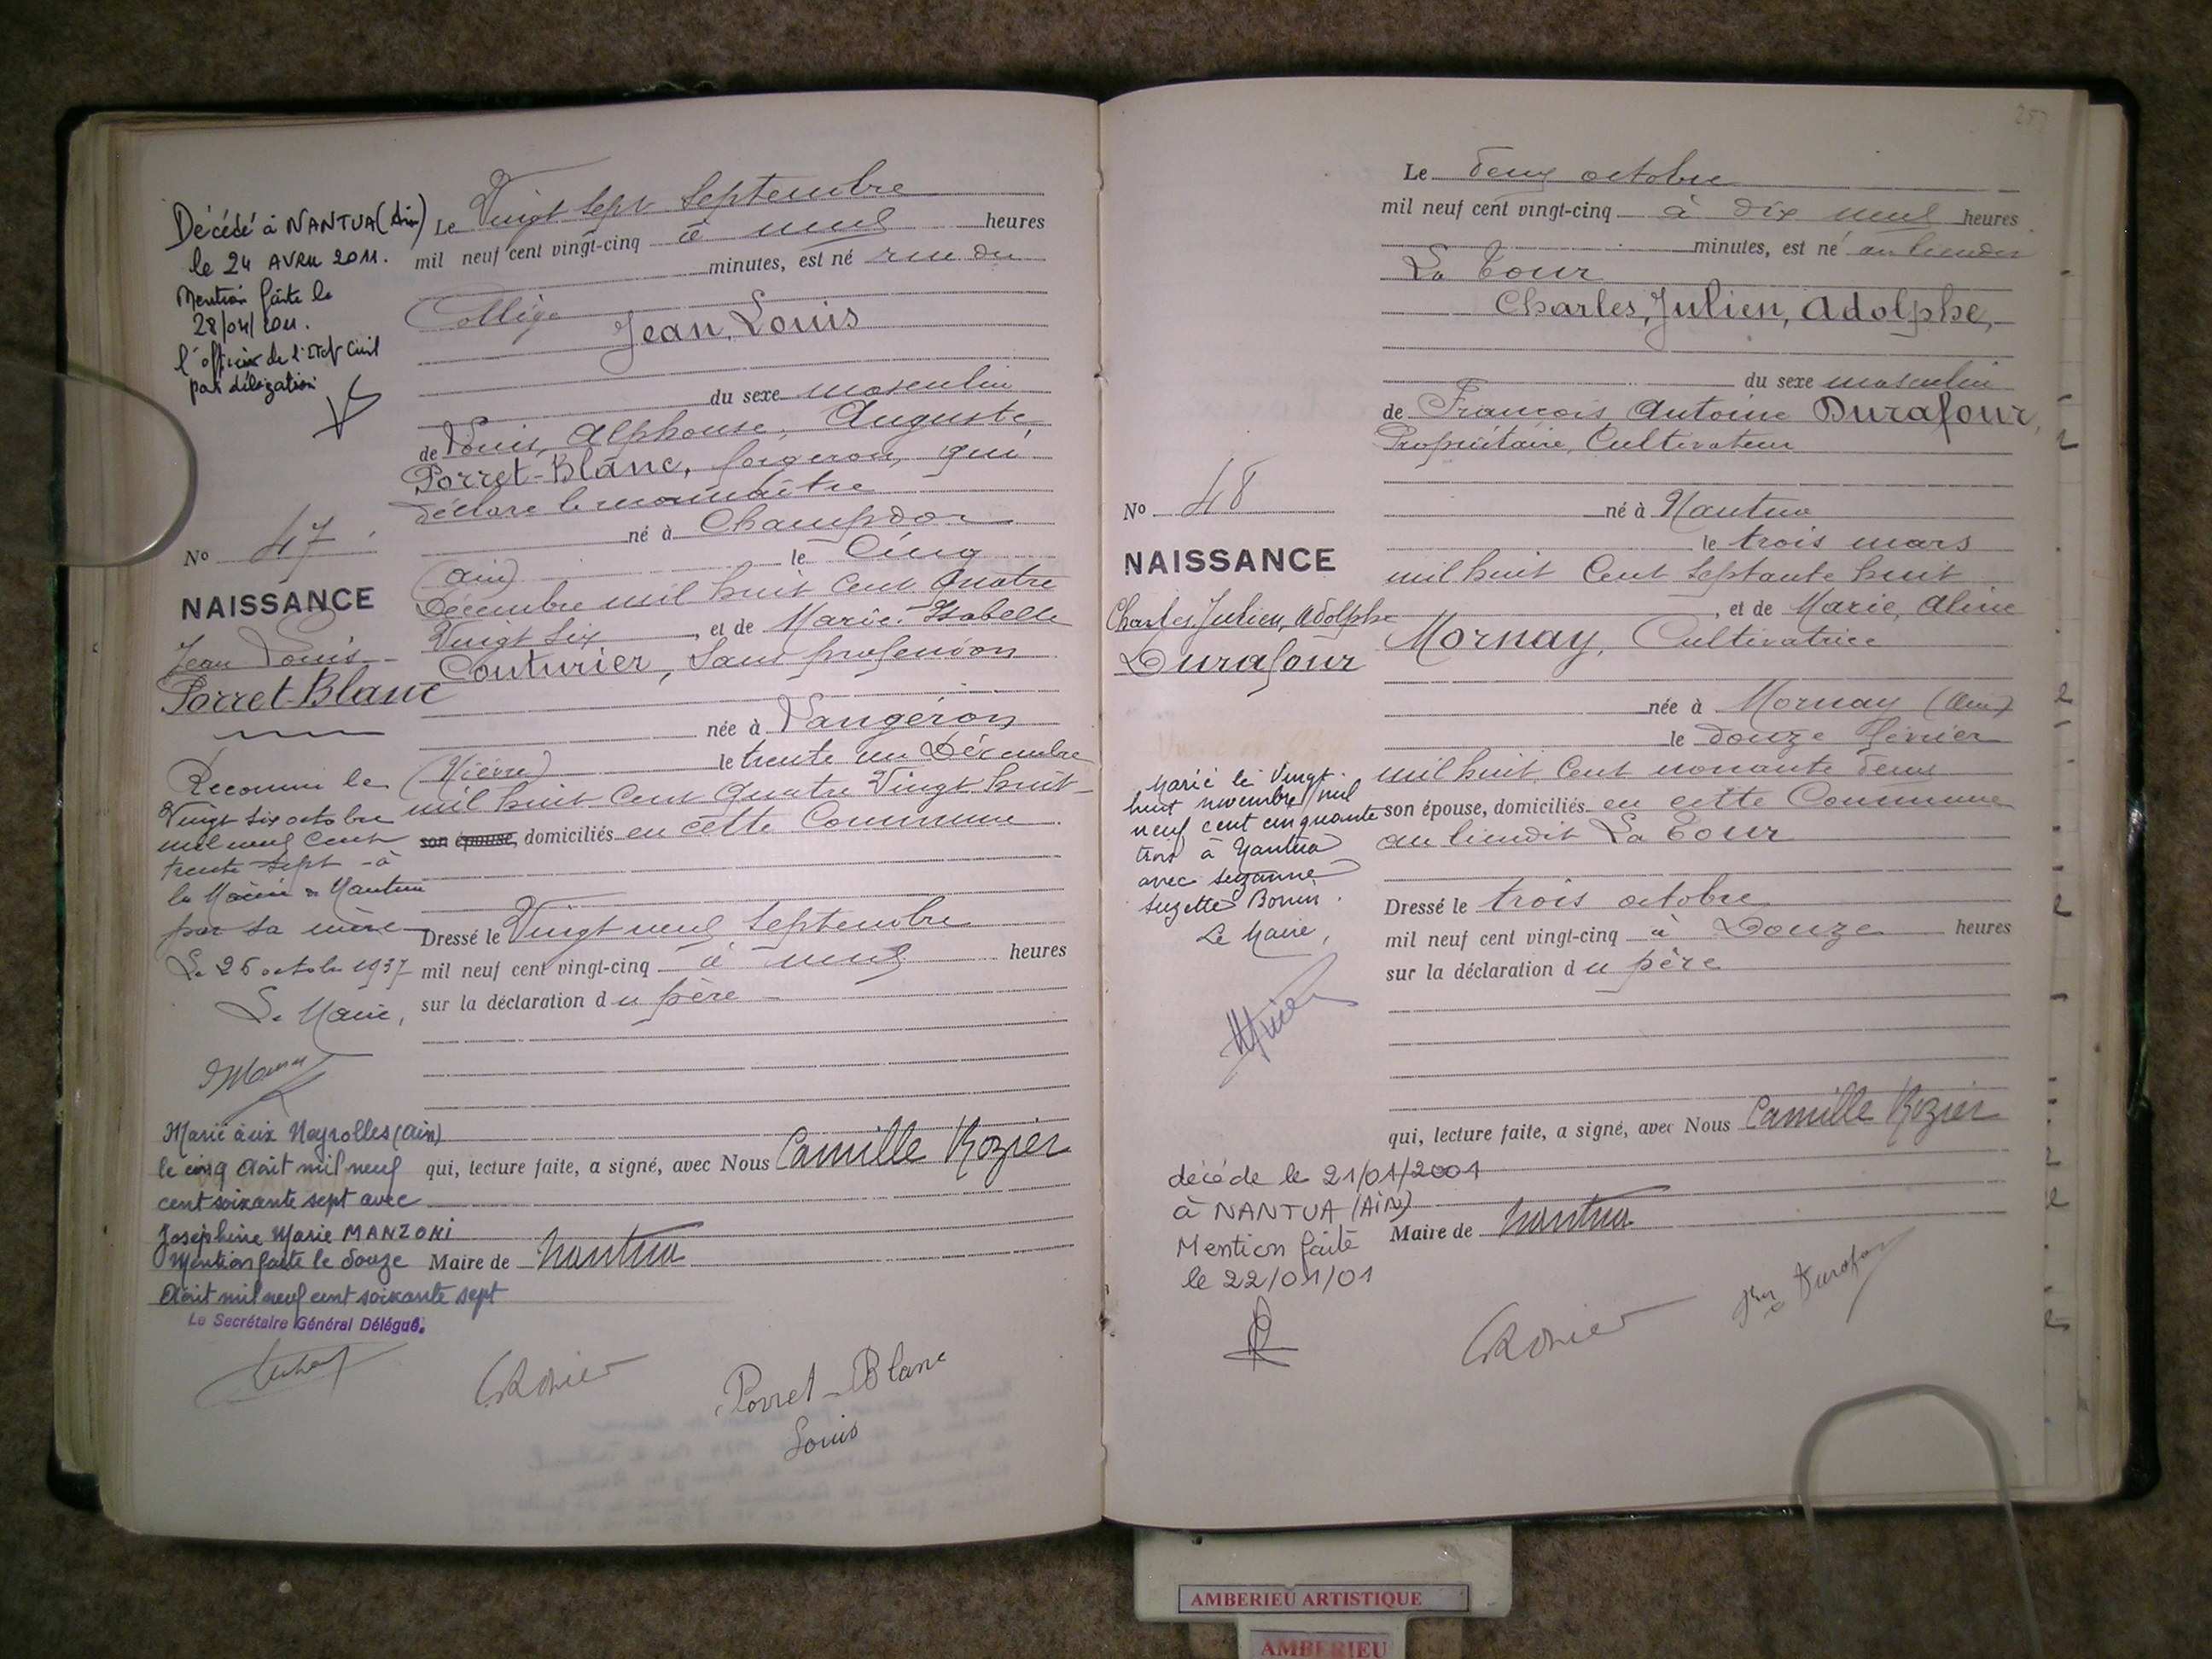 Décédé à NANTUA (Ain)
le 24 AVRIL 2011.
Mention faite le
28/04/2011.
l'officier de l'Etat Civil
par délégation
No 47
NAISSANCE
Jean Louis
Porret-Blanc
Reconnu le
Vingt six octobre
mil neuf cent
trente sept - à
la Mairie de Nantua
par sa mère
Le 26 octobre 1937
Le Maire,
Marié aux Neyrolles (Ain)
le cinq Août mil neuf
cent soixante sept avec
Joséphine Marie MANZONI
Mention faite le douze
Août mil neuf cent soixante sept
Le Secrétaire Général Délégué.
Le Vingt sept Septembre
mil neuf cent vingt-cinq à neuf heures
minutes, est né rue du
Collège
Jean, Louis
du sexe masculin
de Louis, Alphonse, Auguste
Porret-Blanc, forgeron, qui
déclare le reconnaître
né à Champdor
(Ain) le Cinq
Décembre mil huit Cent Quatre
Vingt Six, et de Marie, Isabelle
Couturier, Sans profession
née à
(Nièvre) le trente un Décembre
mil huit Cent Quatre Vingt huit
son épouse, domiciliés en cette Commune
Dressé le Vingt neuf Septembre
mil neuf cent vingt-cinq à neuf heures
sur la déclaration du père
qui, lecture faite, a signé, avec Nous Camille Rozier
Maire de Nantua
CRozier
Porret-Blanc
Louis
Le deux octobre
mil neuf cent vingt-cinq à dix neuf heures
minutes, est né au lieudit
La Tour
Charles, Julien, Adolphe,
du sexe masculin
de François Antoine Durafour,
Propriétaire, Cultivateur
né à Nantua
le trois mars
mil huit Cent Septante huit
, et de Marie, Aline
Mornay, Cultivatrice
née à Mornay (Ain)
le douze février
mil huit Cent nonante deux
son épouse, domiciliés en cette Commune
au lieudit La Tour
Dressé le trois octobre
mil neuf cent vingt-cinq à Douze heures
sur la déclaration du père
qui, lecture faite, a signé, avec Nous Camille Rozier
Maire de Nantua
CRozier
Durafour
No 48
NAISSANCE
Charles, Julien, Adolphe
Durafour
Marié le Vingt
huit novembre mil
neuf cent cinquante
trois à Nantua
avec Suzanne
Suzette Bonin.
Le Maire,
décédé le 21/01/2001
à NANTUA (AIN)
Mention faite
le 22/01/01
AMBERIEU ARTISTIQUE
AMBERIEU